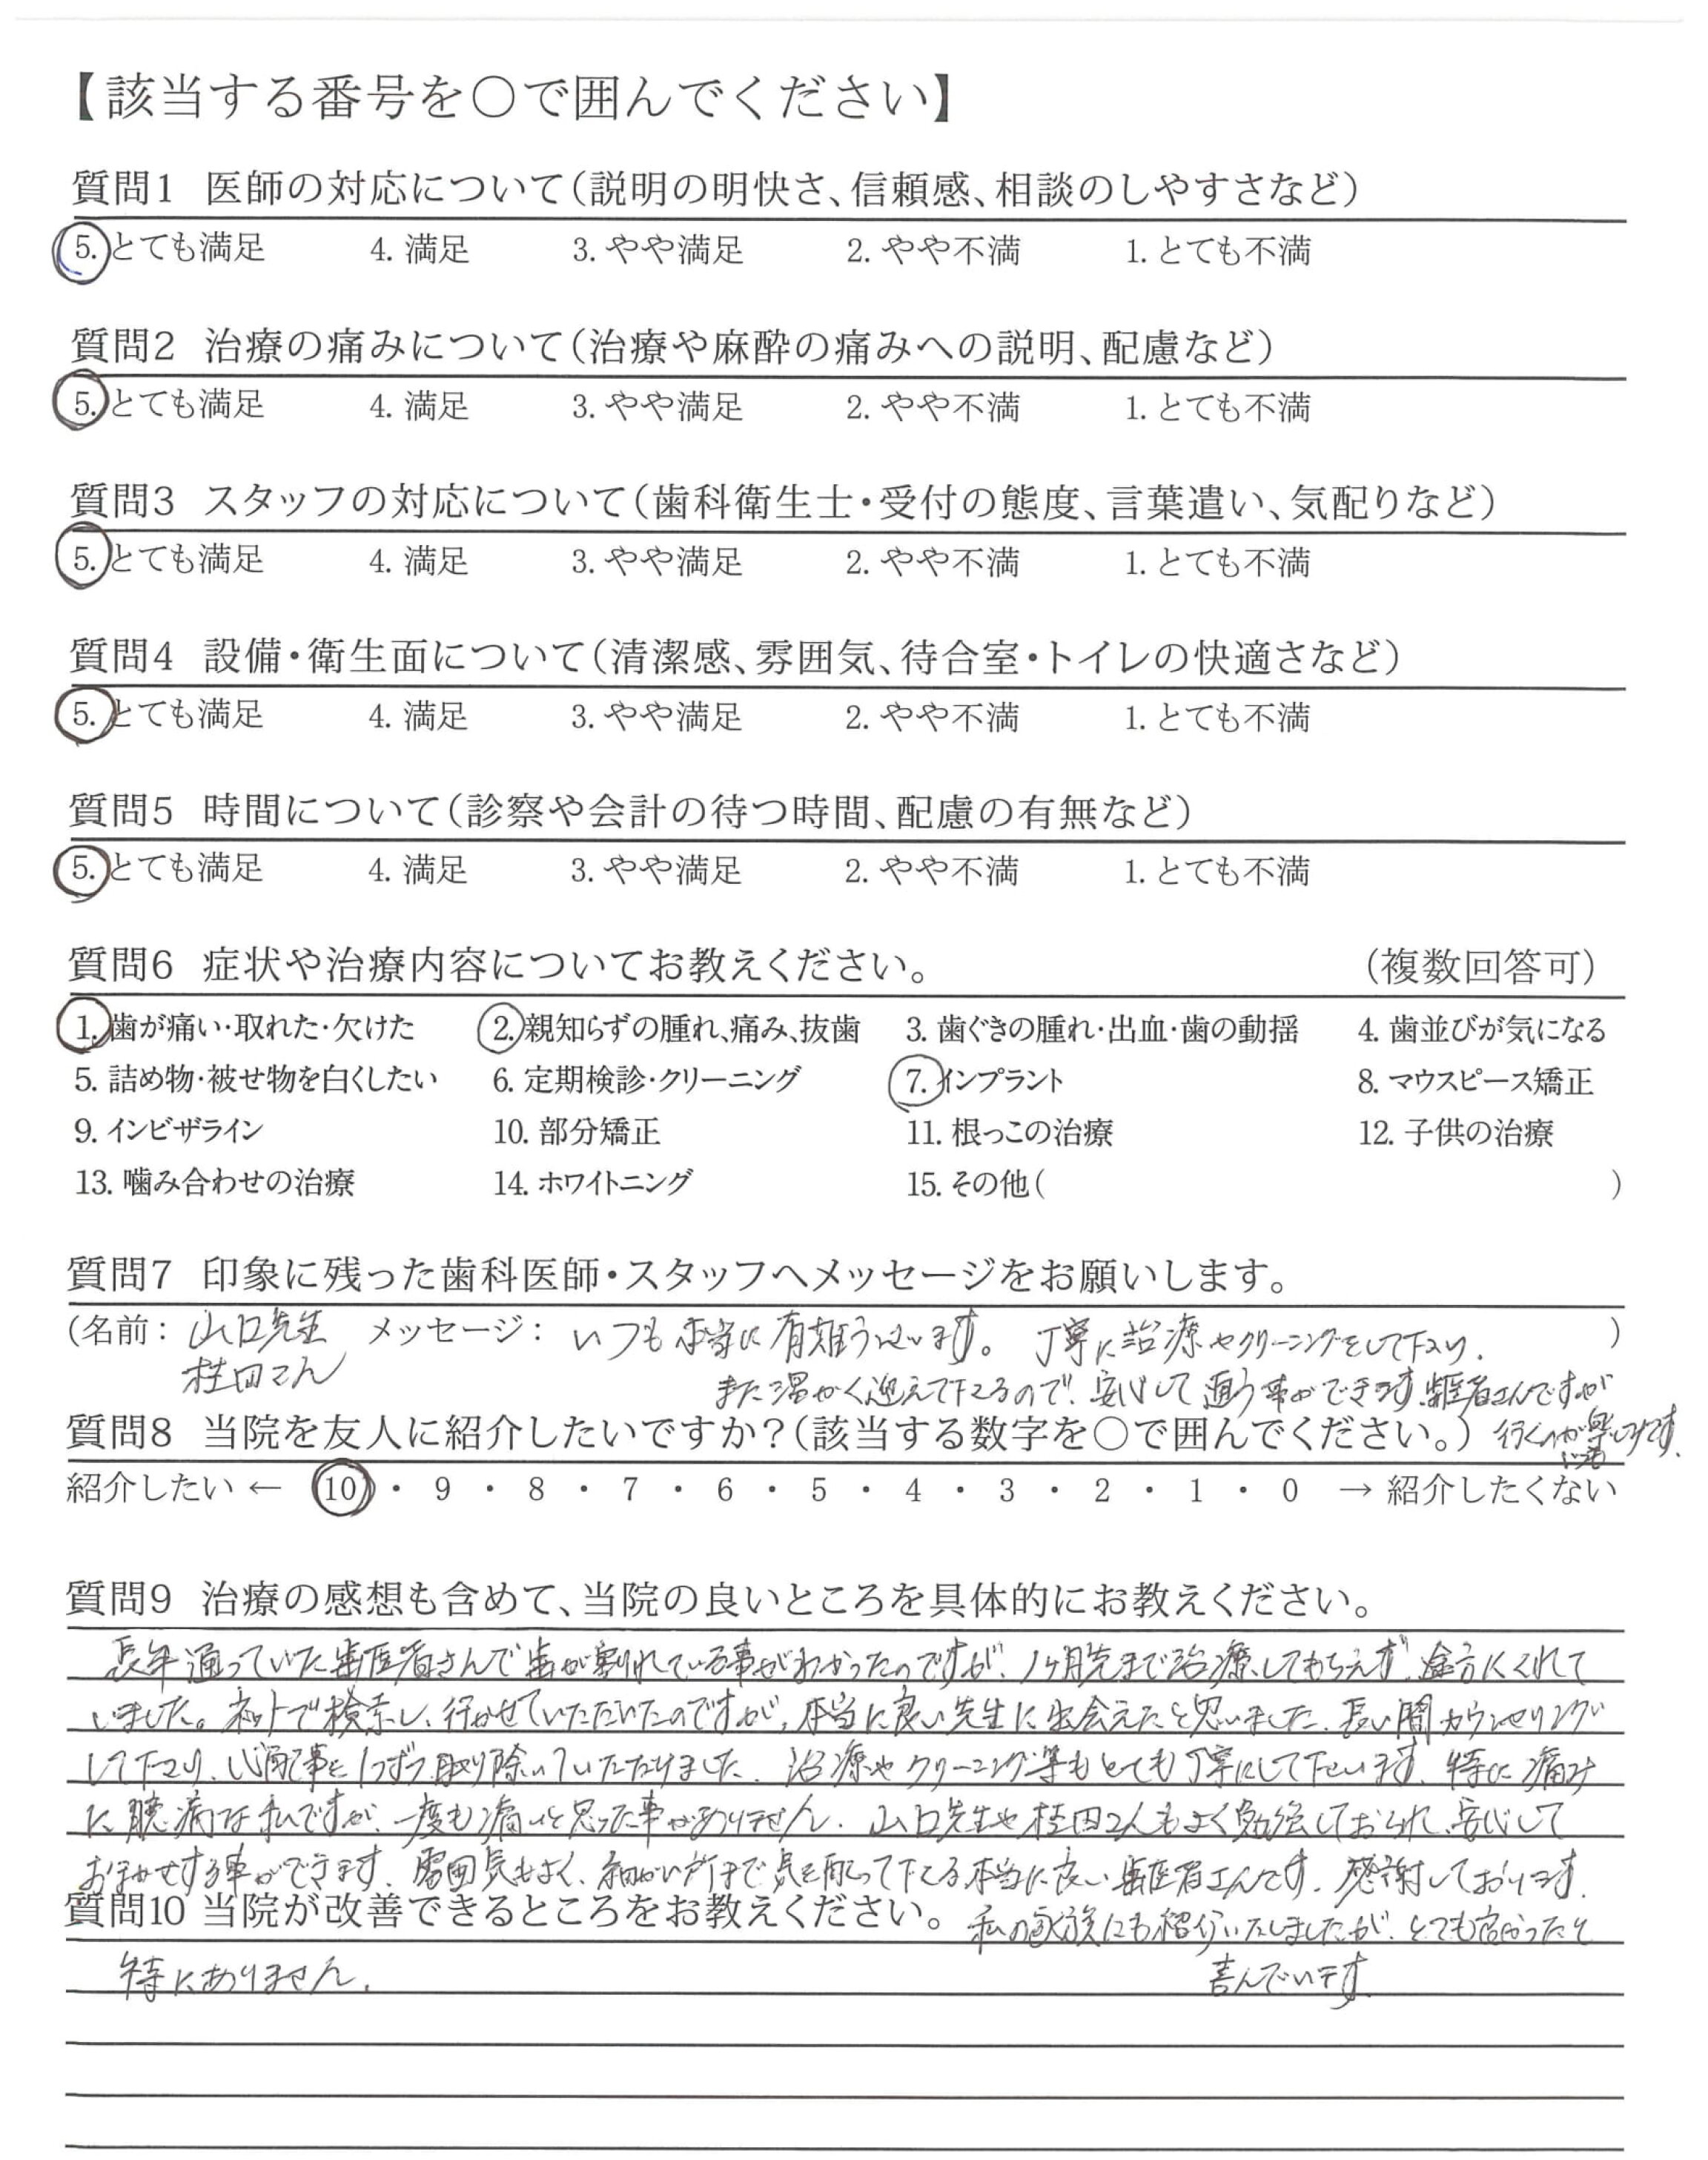 【該当する番号を〇で囲んでください】
質問1 医師の対応について(説明の明快さ、信頼感、相談のしやすさなど)
5. とても満足 4. 満足 3. やや満足 2. やや不満 1. とても不満
質問2 治療の痛みについて(治療や麻酔の痛みへの説明、配慮など)
5. とても満足 4. 満足 3. やや満足 2. やや不満 1. とても不満
質問3 スタッフの対応について(歯科衛生士・受付の態度、言葉遣い、気配りなど)
5. とても満足 4. 満足 3. やや満足 2. やや不満 1. とても不満
質問4 設備・衛生面について(清潔感、雰囲気、待合室・トイレの快適さなど)
5. とても満足 4. 満足 3. やや満足 2. やや不満 1. とても不満
質問5 時間について(診察や会計の待つ時間、配慮の有無など)
5. とても満足 4. 満足 3. やや満足 2. やや不満 1. とても不満
質問6 症状や治療内容についてお教えください。 (複数回答可)
1. 歯が痛い・取れた・欠けた 2. 親知らずの腫れ、痛み、抜歯 3. 歯ぐきの腫れ・出血・歯の動揺 4. 歯並びが気になる
5. 詰め物・被せ物を白くしたい 6. 定期検診・クリーニング 7. インプラント 8. マウスピース矯正
9. インビザライン 10. 部分矯正 11. 根っこの治療 12. 子供の治療
13. 噛み合わせの治療 14. ホワイトニング 15. その他( )
質問7 印象に残った歯科医師・スタッフへメッセージをお願いします。
(名前: 山口先生 メッセージ: いつも本当に有難うございます。丁寧に治療やクリーニングをして下さり、)
桂田さん また温かく迎えて下さるので、安心して通う事ができます。歯医者さんですが
行くのが楽しみです。
質問8 当院を友人に紹介したいですか?(該当する数字を〇で囲んでください。)
紹介したい ← 10 ・ 9 ・ 8 ・ 7 ・ 6 ・ 5 ・ 4 ・ 3 ・ 2 ・ 1 ・ 0 → 紹介したくない
質問9 治療の感想も含めて、当院の良いところを具体的にお教えください。
長年通っていた歯医者さんで歯が割れている事がわかったのですが、1ヶ月先まで治療してもらえず、途方にくれて
いました。ネットで検索し、行かせていただいたのですが、本当に良い先生に出会えたと思いました。長い間カウンセリング
して下さり、心配事を1つずつ取り除いていただけました。治療やクリーニング等もとても丁寧にして下さいます。特に痛み
に臆病な私ですが、一度も痛いと思った事がありません。山口先生や桂田さんもよく勉強しておられ、安心して
おまかせする事ができます。雰囲気もよく、細かい所まで気を配って下さる本当に良い歯医者さんです。感謝しております。
質問10 当院が改善できるところをお教えください。
私の家族にも紹介いたしましたが、とても良かったと
特にありません。 喜んでいます。